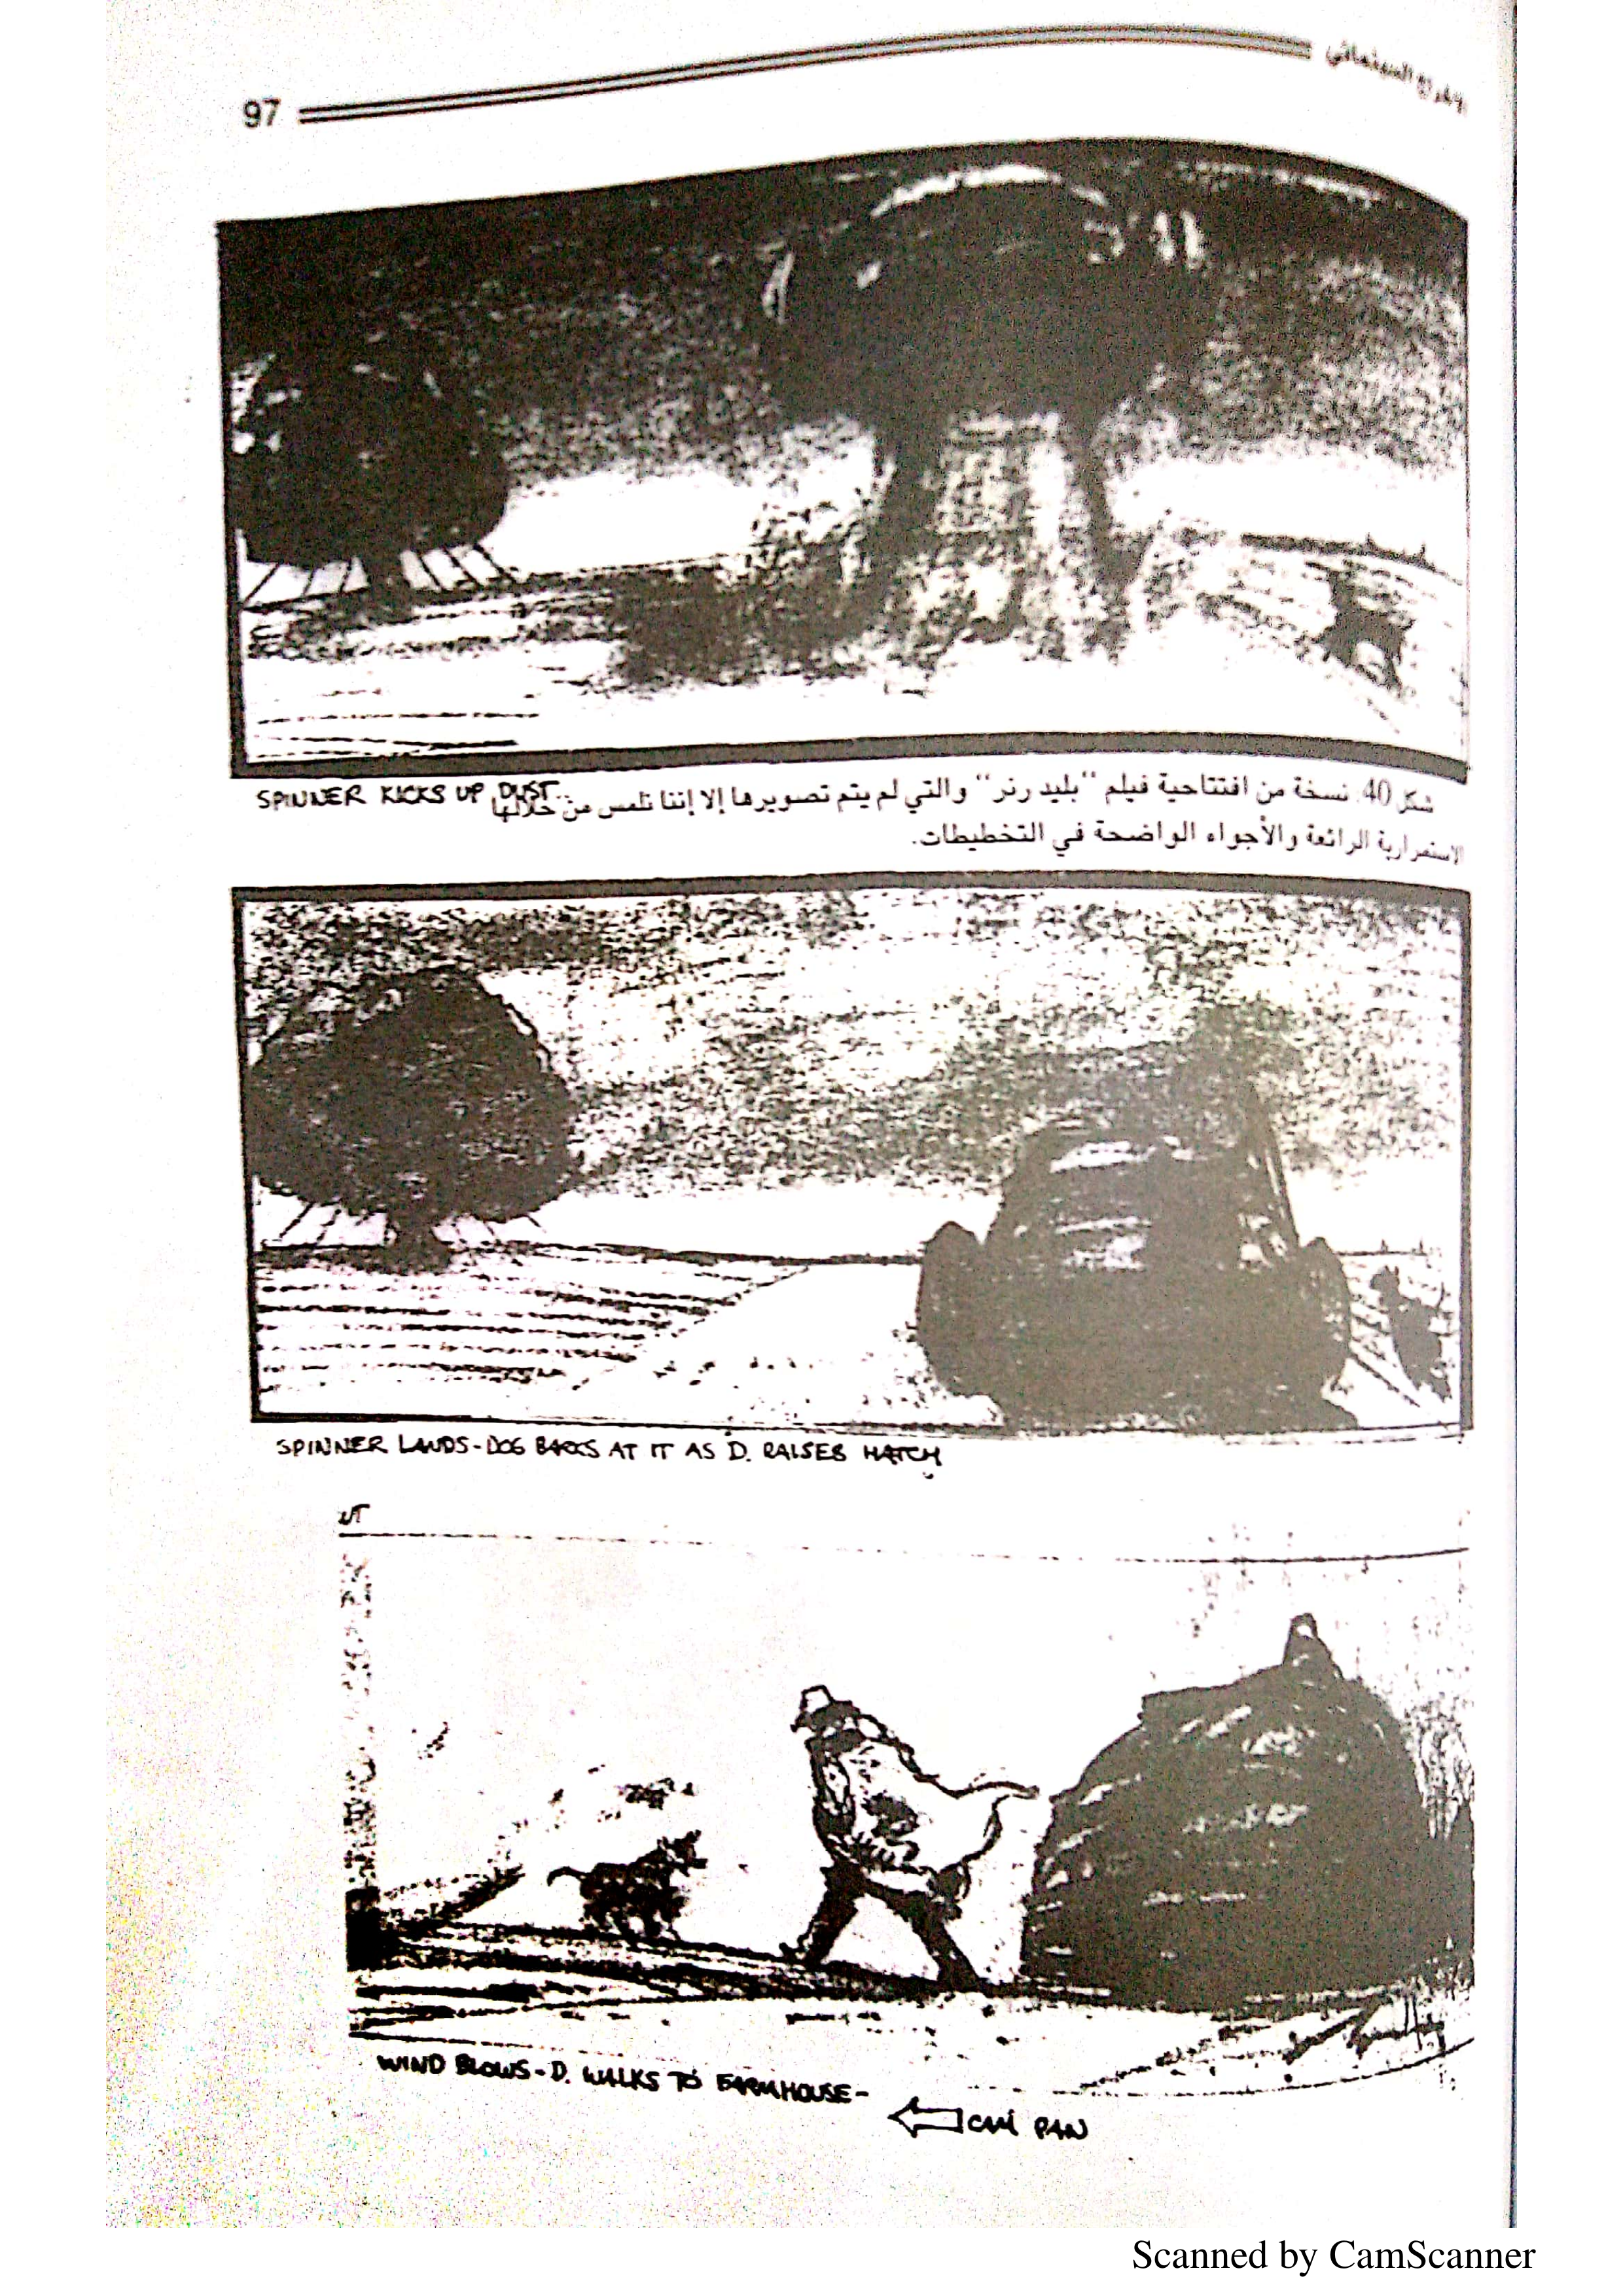 الإخراج السينمائي
97
SPINNER KICKS UP DUST..
شكل 40. نسخة من افتتاحية فيلم "بليد رنر" والتي لم يتم تصويرها إلا إننا نلمس من خلالها
الاستمرارية الرائعة والأجواء الواضحة في التخطيطات.
SPINNER LANDS-DOG BARKS AT IT AS D. RAISES HATCH
WIND BLOWS-D. WALKS TO FARMHOUSE-
CAM PAN
Scanned by CamScanner